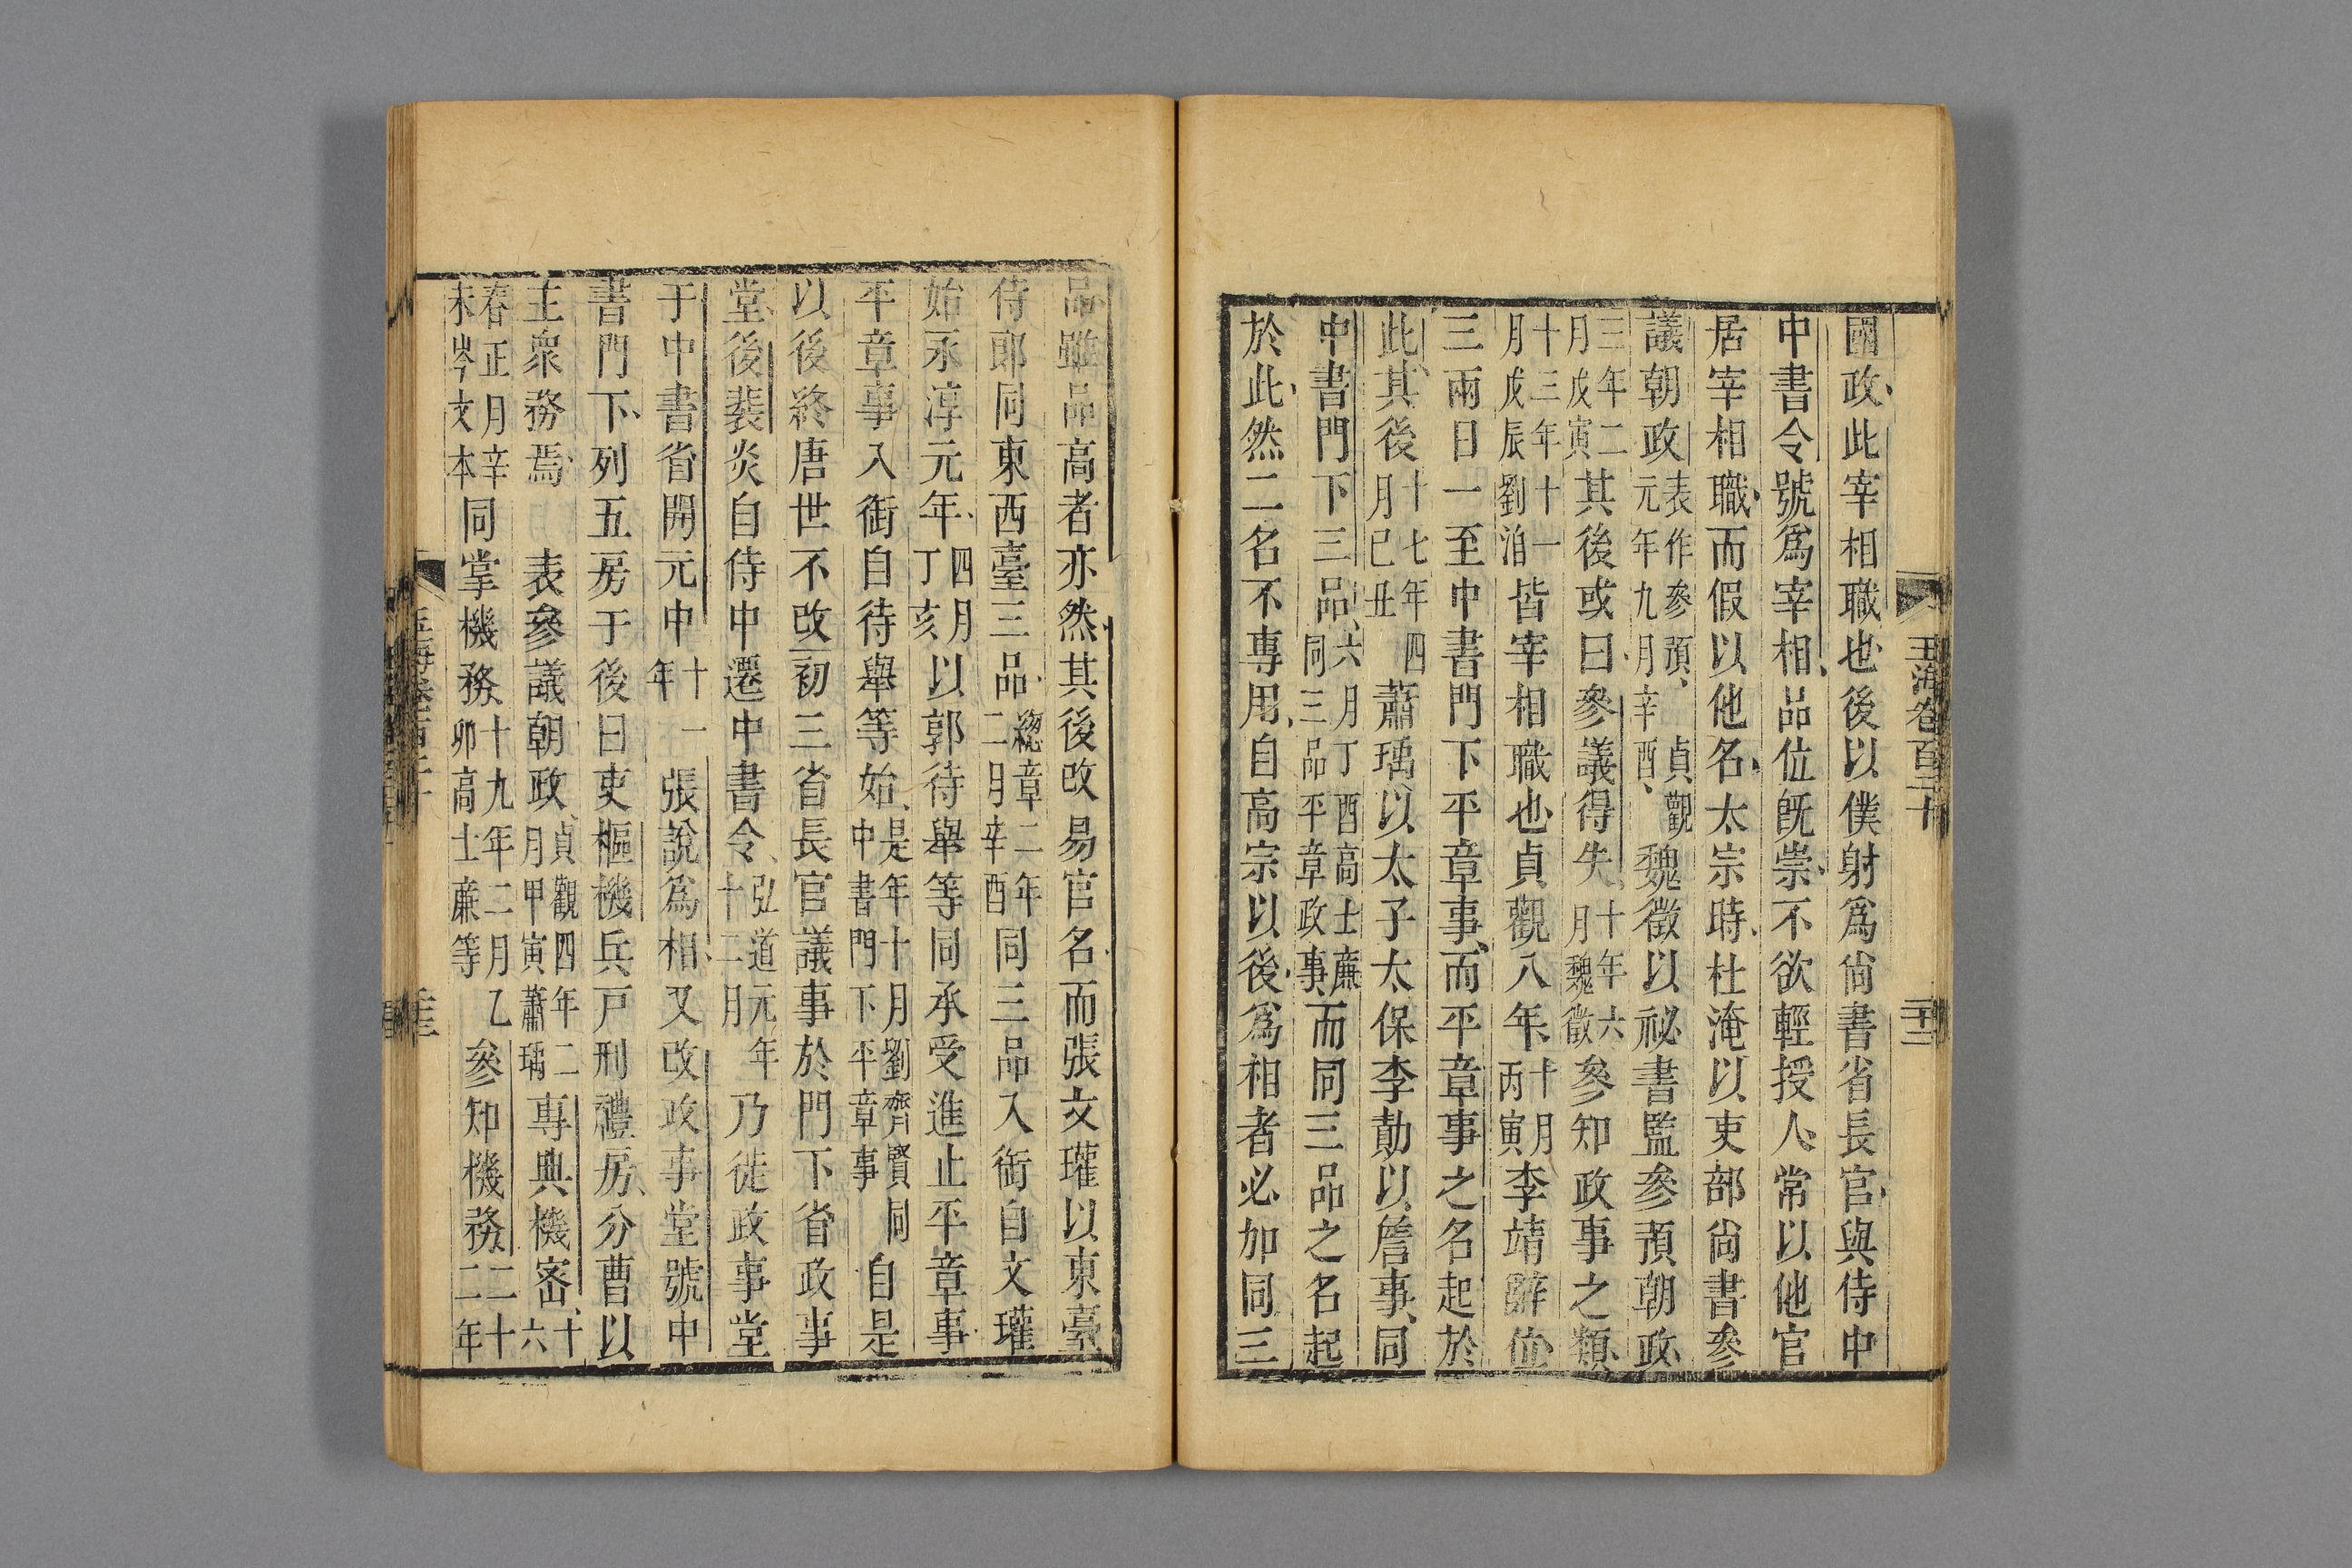 玉海卷百二十
二十二
國政此宰相職也後以僕射爲尙書省長官與侍中
中書令號爲宰相品位旣崇不欲輕授人常以他官
居宰相職而假以他名太宗時杜淹以吏部尙書參
議朝政表作參預貞觀元年九月辛酉魏徵以祕書監參預朝政
三年二月戊寅其後或曰參議得失十年六月魏徵參知政事之類
十三年十一月戊辰劉洎皆宰相職也貞觀八年十月丙寅李靖辭位
三兩日一至中書門下平章事而平章事之名起於
此其後十七年四月已丑蕭瑀以太子太保李勣以詹事同
中書門下三品六月丁酉高士廉同三品平章政事而同三品之名起
於此然二名不專用自高宗以後爲相者必加同三
品雖品高者亦然其後改易官名而張文瓘以東臺
侍郎同東西臺三品總章二年二月辛酉同三品入銜自文瓘
始永淳元年四月丁亥以郭待舉等同承受進止平章事
平章事入銜自待舉等始是年十月劉齊賢同中書門下平章事自是
以後終唐世不改初三省長官議事於門下省政事
堂後裴炎自侍中遷中書令弘道元年十二月乃徙政事堂
于中書省開元中十一年張說爲相又改政事堂號中
書門下列五房于後曰吏樞機兵戸刑禮房分曹以
主衆務焉 表參議朝政貞觀四年二月甲寅蕭瑀專典機密十六
春正月辛未岑文本同掌機務十九年二月乙卯高士廉等參知機務二十二年